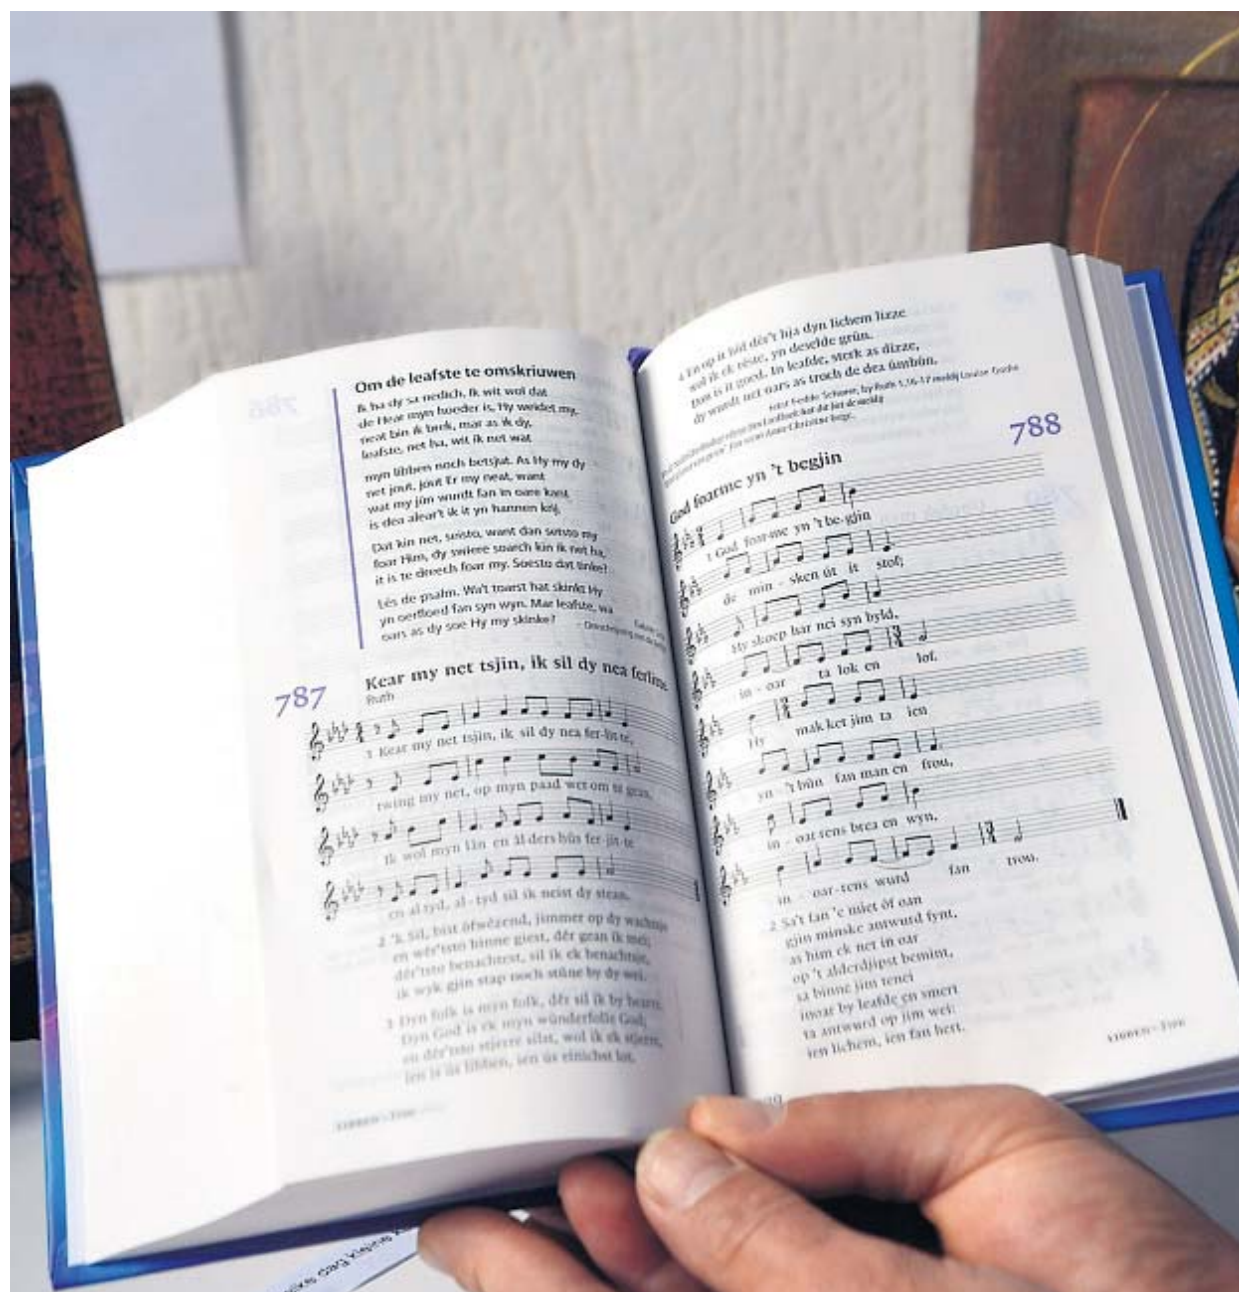 Om de leafste te omskriuwen
Ik ha dy sa nedich, Ik wit wol dat
de Hear myn hoeder is, Hy weidet my,
neat bin ik brek, mar as ik dy,
leafste, net ha, wit ik net wat
myn libben noch betsjut. As Hy my dy
net jout, jout Er my neat, want
wat my jûn wurdt fan in oare kant
is dea alear't ik it yn hannen krij.
Dat kin net, seisto, want dan setsto my
foar Him, dy swiere spraech kin ik net ha,
it is te dreech foar my. Soesto dat tinke?
Lês de psalm. Wa't traast hat skinkt Hy
yn oerfloed fan syn wyn. Mar leafste, wa
oars as dy soe Hy my skinke?
787
Kear my net tsjin, ik sil dy nea ferlitte
Ruth
1 Kear my net tsjin, ik sil dy nea fer-lit-te,
twing my net, op myn paad wer om te gean.
Ik wol myn lân en âl-ders-hûs fer-jit-te
en al-tyd, al-tyd sil ik neist dy stean.
2 'k Sil, bist ôfwêzend, jimmer op dy wachtsje
en wêr'tsto binne giest, dêr gean ik mei;
dêr'tsto benachtest, sil ik ek benachtsje,
ik wyk gjin stap noch stûne by dy wei.
3 Dyn folk is myn folk, dêr sil ik by hearre.
Dyn God is ek myn wûnderfolle God;
en dêr'tsto stjerre silst, wol ik ek stjerre,
ien is ús libben, ien ús einichst lot.
LIBBEN – TIID
4 En op it lân dêr't hja dyn lichem lizze
wol ik ek rêste, yn deselde grûn.
Dan is it goed. In leafde, sterk as dizze,
dy wurdt net oars as troch de dea ûntbûn.
788
God foarme yn 't begjin
1 God foar-me yn 't be-gjin
de min - sken út it stof;
Hy skoep har nei syn byld,
in - oar ta lok en lof.
Hy mak-ket jim ta ien
yn 't bûn fan man en frou,
in - oar-tens brea en wyn,
in - oar-tens wurd fan trou.
2 Sa't fan 'e miet ôf oan
gjin minske antwurd fynt,
as him ek net in oar
op 't alderdjipst bemint,
sa binne jim tenei
inoar by leafde en smert
ta antwurd op jim wei:
ien lichem, ien fan hert.
LIBBEN – TIID